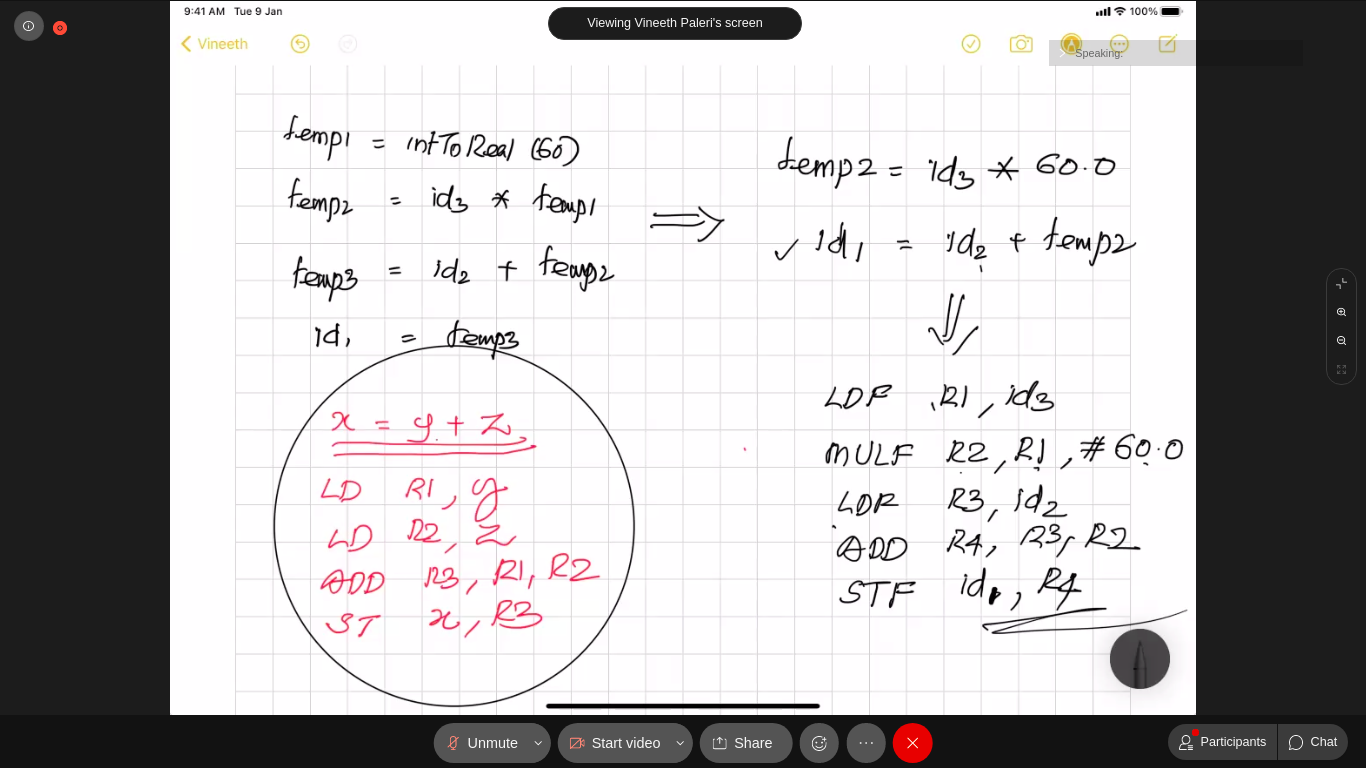 9:41 AM Tue 9 Jan
Viewing Vineeth Paleri's screen
100%
Vineeth
Speaking:
temp1 = intToReal (60)
temp2 = id3 * temp1
temp3 = id2 + temp2
id1 = temp3
⇒
temp2 = id3 * 60.0
✓ id1 = id2 + temp2
⇓
x = y + z
LD R1, y
LD R2, z
ADD R3, R1, R2
ST x, R3
LDF R1, id3
MULF R2, R1, #60.0
LDF R3, id2
ADD R4, R3, R2
STF id1, R4
Unmute
Start video
Share
Participants
Chat